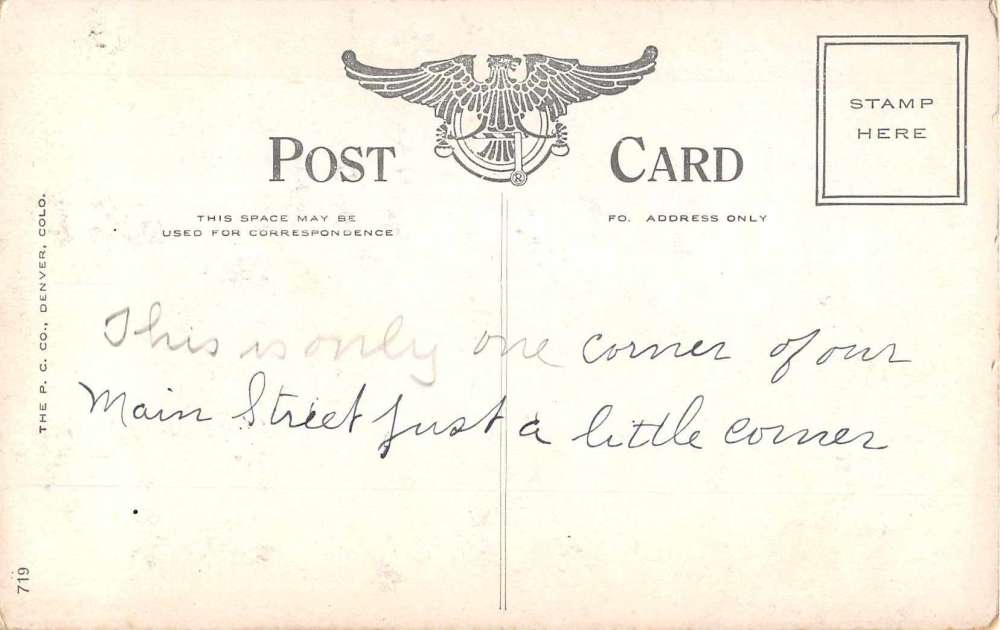 POST CARD
STAMP
HERE
THIS SPACE MAY BE
USED FOR CORRESPONDENCE
FO. ADDRESS ONLY
THE P. C. CO., DENVER, COLO.
This is only one corner of our
Main Street just a little corner
719